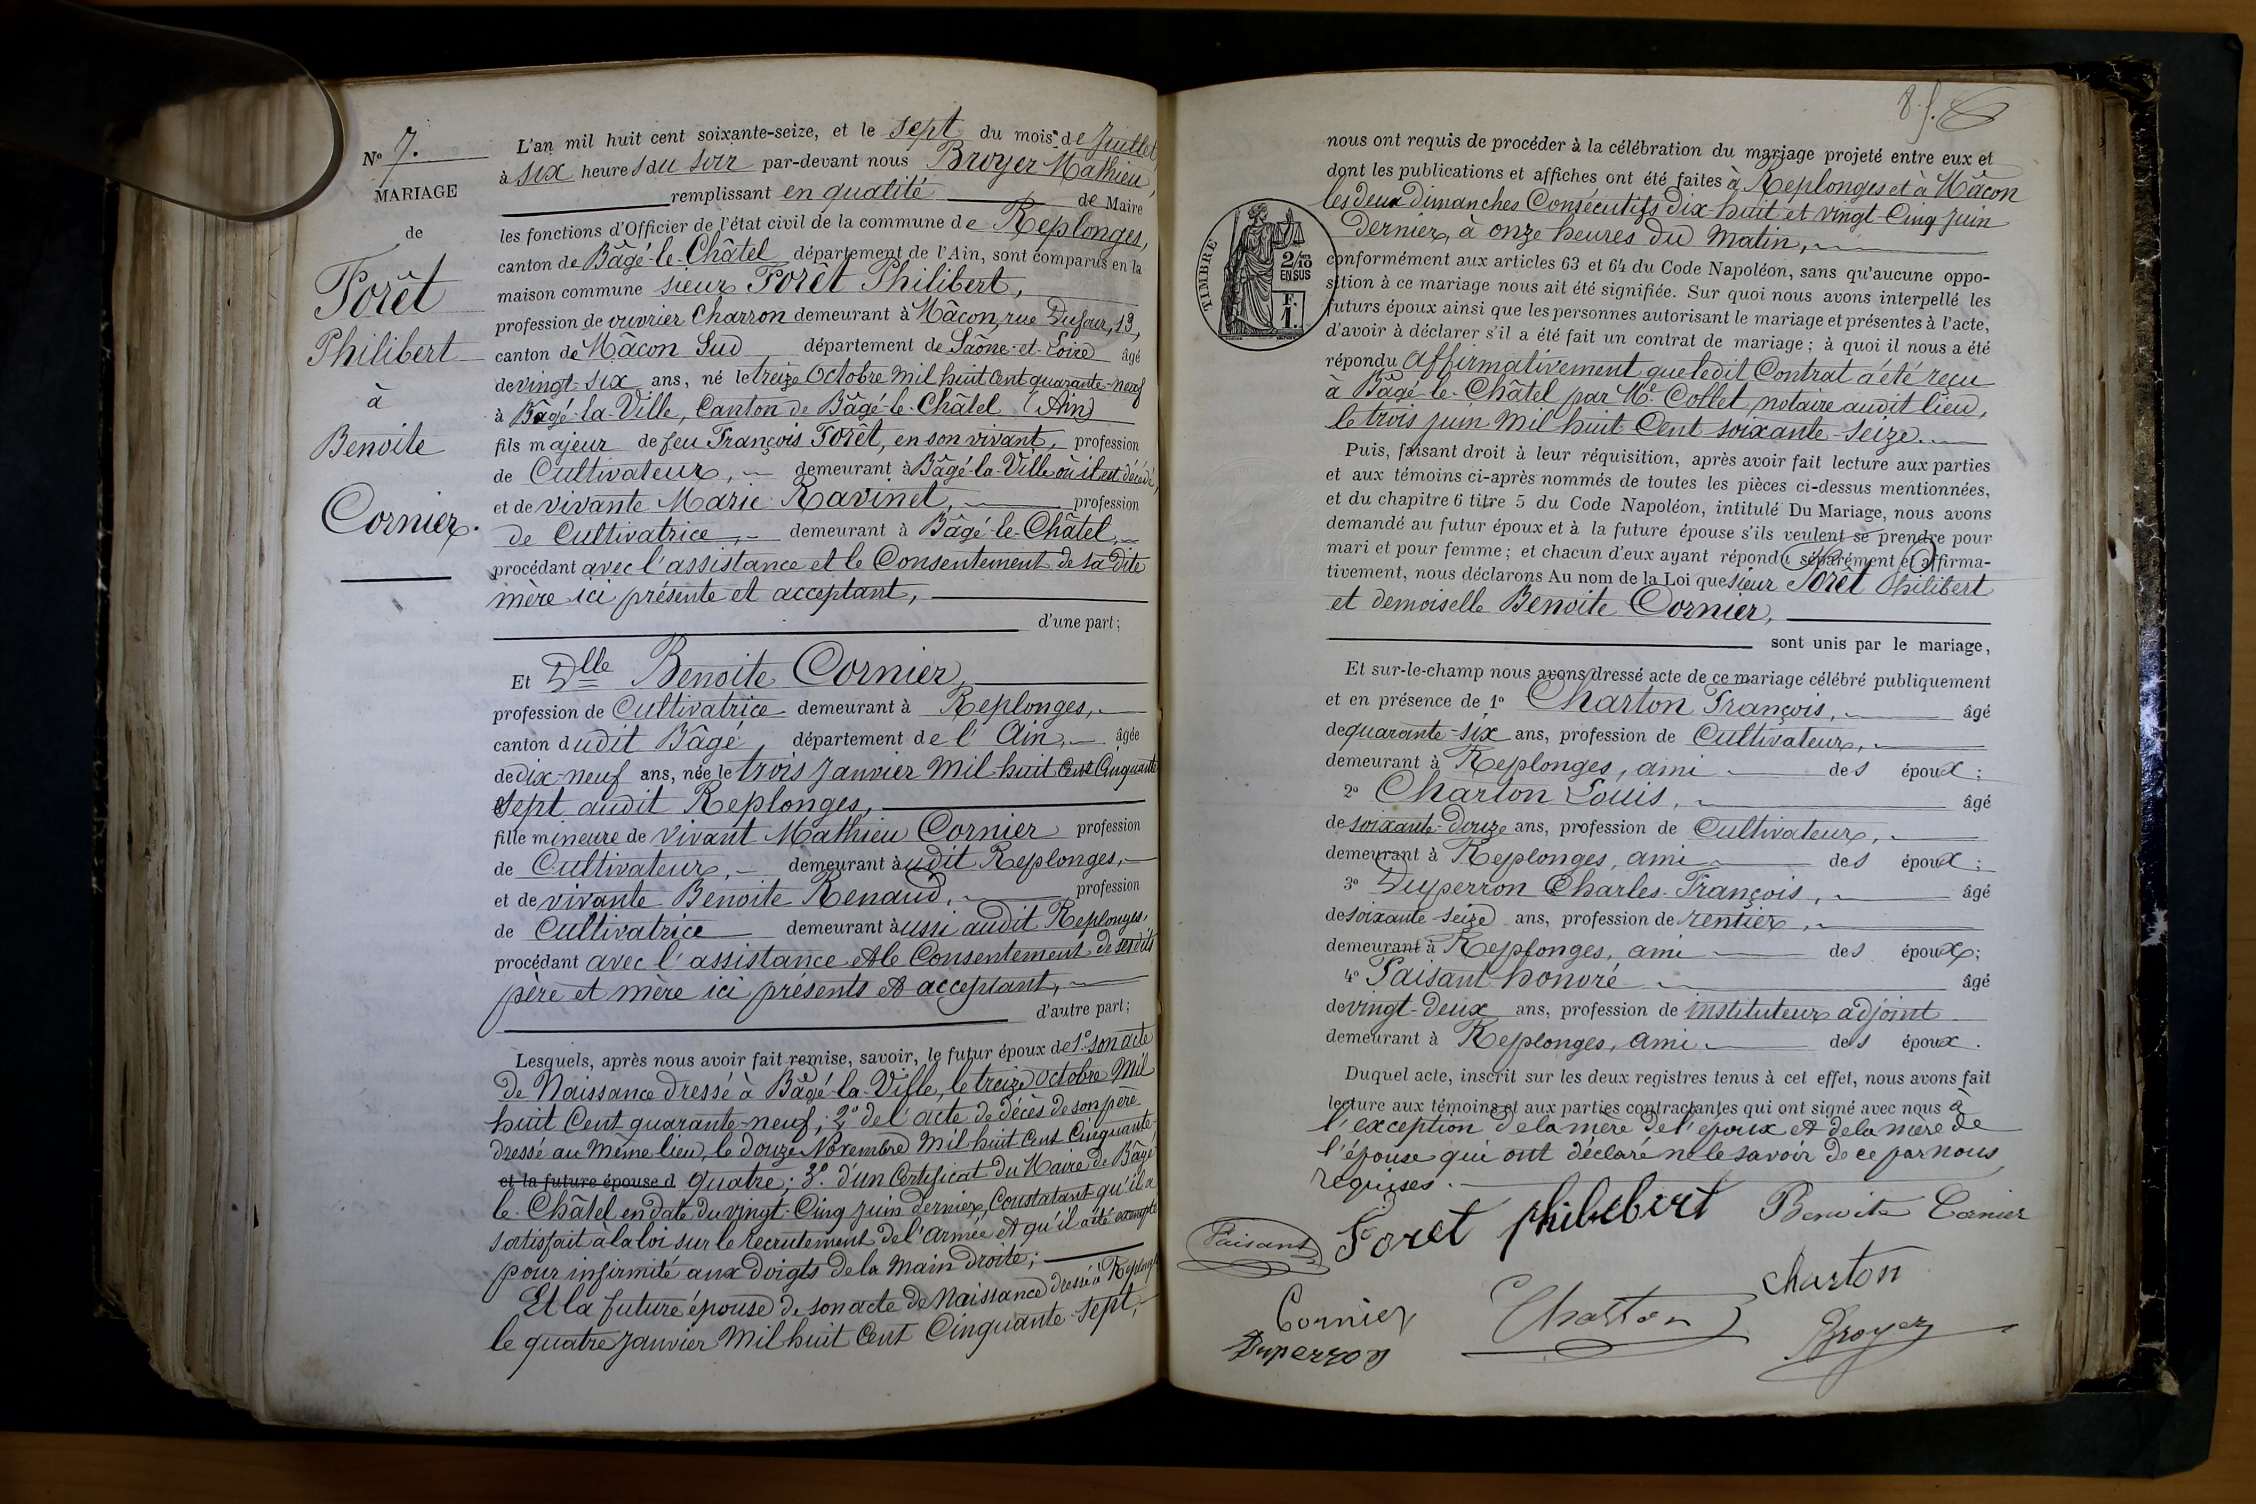 N° 7.
MARIAGE
de
Forêt
Philibert
à
Benoite
Cornier.
L'an mil huit cent soixante-seize, et le sept du mois de Juillet
à six heures du soir par-devant nous Broyer Mathieu,
remplissant en qualité de Maire
les fonctions d'Officier de l'état civil de la commune de Replonges,
canton de Bâgé-le-Châtel département de l'Ain, sont comparus en la
maison commune sieur Forêt Philibert,
profession de ouvrier Charron demeurant à Mâcon, rue Dufour, 13,
canton de Mâcon Sud, département de Saône-et-Loire âgé
de vingt-six ans, né le treize Octobre mil huit cent quarante-neuf
à Bâgé-la-Ville, Canton de Bâgé-le-Châtel (Ain)
fils majeur de feu François Forêt, en son vivant, profession
de Cultivateur, demeurant à Bâgé-la-Ville où il est décédé,
et de vivante Marie Ravinet, profession
de Cultivatrice, demeurant à Bâgé-le-Châtel,
procédant avec l'assistance et le Consentement de sa dite
mère ici présente et acceptant,
d'une part;
Et Dlle Benoite Cornier,
profession de Cultivatrice demeurant à Replonges,
canton dudit Bâgé, département de l'Ain, âgée
de dix-neuf ans, née le trois Janvier Mil huit Cent Cinquante
sept audit Replonges,
fille mineure de vivant Mathieu Cornier profession
de Cultivateur, demeurant audit Replonges,
et de vivante Benoite Renaud, profession
de Cultivatrice demeurant aussi audit Replonges,
procédant avec l'assistance et le Consentement de ses dits
père et mère ici présents et acceptant,
d'autre part;
Lesquels, après nous avoir fait remise, savoir, le futur époux de 1° son acte
de Naissance dressé à Bâgé-la-Ville, le treize Octobre Mil
huit Cent quarante-neuf; 2° de l'acte de décès de son père
dressé au même lieu, le douze Novembre Mil huit Cent Cinquante-
et la future épouse d quatre; 3° d'un Certificat du Maire de Bâgé
le-Châtel en date du vingt-Cinq juin dernier, Constatant qu'il a
satisfait à la loi sur le recrutement de l'armée et qu'il a été exempté
pour infirmité aux doigts de la main droite;
Et la future épouse de son acte de Naissance dressé à Replonges
le quatre Janvier Mil huit Cent Cinquante-sept,
nous ont requis de procéder à la célébration du mariage projeté entre eux et
dont les publications et affiches ont été faites à Replonges et à Mâcon
les deux dimanches Consécutifs dix huit et vingt Cinq juin
Dernier, à onze heures du Matin,
TIMBRE
2/10
EN SUS
F.
1.
conformément aux articles 63 et 64 du Code Napoléon, sans qu'aucune oppo-
sition à ce mariage nous ait été signifiée. Sur quoi nous avons interpellé les
futurs époux ainsi que les personnes autorisant le mariage et présentes à l'acte,
d'avoir à déclarer s'il a été fait un contrat de mariage; à quoi il nous a été
répondu affirmativement que ledit Contrat a été reçu
à Bâgé-le-Châtel par Me Collet notaire audit lieu,
le trois juin Mil huit Cent soixante-seize.
Puis, faisant droit à leur réquisition, après avoir fait lecture aux parties
et aux témoins ci-après nommés de toutes les pièces ci-dessus mentionnées,
et du chapitre 6 titre 5 du Code Napoléon, intitulé Du Mariage, nous avons
demandé au futur époux et à la future épouse s'ils veulent se prendre pour
mari et pour femme; et chacun d'eux ayant répondu séparément et affirma-
tivement, nous déclarons Au nom de la Loi que sieur Forêt Philibert
et demoiselle Benoite Cornier,
sont unis par le mariage,
Et sur-le-champ nous avons dressé acte de ce mariage célébré publiquement
et en présence de 1° Charton François, âgé
de quarante-six ans, profession de Cultivateur,
demeurant à Replonges, ami des époux;
2° Charton Louis, âgé
de soixante-douze ans, profession de Cultivateur,
demeurant à Replonges, ami des époux;
3° Duperron Charles-François, âgé
de soixante seize ans, profession de rentier,
demeurant à Replonges, ami des époux;
4° Faisant honoré âgé
de vingt-deux ans, profession de instituteur adjoint
demeurant à Replonges, ami des époux.
Duquel acte, inscrit sur les deux registres tenus à cet effet, nous avons fait
lecture aux témoins et aux parties contractantes qui ont signé avec nous à
l'exception de la mère de l'époux et de la mère de
l'épouse qui ont déclaré ne le savoir de ce par nous
requises.
Faisant Foret philibert Benoite Cornier
Cornier Charton charton
Duperron Broyer